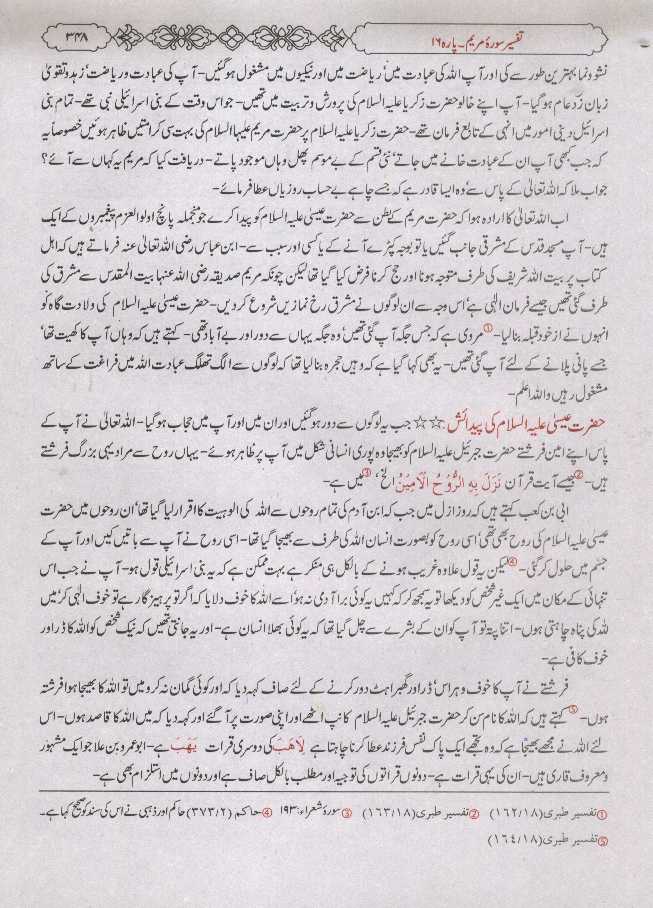 تفسیر سورۂ مریم۔ پارہ ۱۶
۳۴۸
نشوونما بہترین طور سے کی اور آپ اللہ کی عبادت میں' ریاضت میں اور نیکیوں میں مشغول ہو گئیں۔ آپ کی عبادت و ریاضت' زہد و تقویٰ
زبان زد عام ہو گیا۔ آپ اپنے خالو حضرت زکریا علیہ السلام کی پرورش و تربیت میں تھیں۔ جو اس وقت کے بنی اسرائیلی نبی تھے۔ تمام بنی
اسرائیل دینی امور میں انہی کے تابع فرمان تھے۔ حضرت زکریا علیہ السلام پر حضرت مریم علیہا السلام کی بہت سی کرامتیں ظاہر ہوئیں خصوصاً یہ
کہ جب بھی آپ ان کے عبادت خانے میں جاتے' نئی قسم کے بے موسم پھل وہاں موجود پاتے۔ دریافت کیا کہ مریم یہ کہاں سے آئے؟
جواب ملا کہ اللہ تعالیٰ کے پاس سے' وہ ایسا قادر ہے کہ جسے چاہے بے حساب روزیاں عطا فرمائے۔
اب اللہ تعالیٰ کا ارادہ ہوا کہ حضرت مریم کے بطن سے حضرت عیسیٰ علیہ السلام کو پیدا کرے جو منجملہ پانچ اولوالعزم پیغمبروں کے ایک
ہیں۔ آپ مسجد قدس کے مشرقی جانب گئیں یا تو بوجہ کپڑے آنے کے یا کسی اور سبب سے۔ ابن عباس رضی اللہ تعالیٰ عنہ فرماتے ہیں کہ اہل
کتاب پر بیت اللہ شریف کی طرف متوجہ ہونا اور حج کرنا فرض کیا گیا تھا لیکن چونکہ مریم صدیقہ رضی اللہ عنہا بیت المقدس سے مشرق کی
طرف گئی تھیں جیسے فرمان الٰہی ہے' اس وجہ سے ان لوگوں نے مشرق رخ نمازیں شروع کر دیں۔ حضرت عیسیٰ علیہ السلام کی ولادت گاہ کو
انہوں نے از خود قبلہ بنا لیا۔① مروی ہے کہ جس جگہ آپ گئی تھیں' وہ جگہ یہاں سے دور اور بے آباد تھی۔ کہتے ہیں کہ وہاں آپ کا کھیت تھا'
جسے پانی پلانے کے لئے آپ گئی تھیں۔ یہ بھی کہا گیا ہے کہ وہیں حجرہ بنا لیا تھا کہ لوگوں سے الگ تھلگ عبادت اللہ میں فراغت کے ساتھ
مشغول رہیں واللہ اعلم۔
حضرت عیسیٰ علیہ السلام کی پیدائش: ☆☆ جب یہ لوگوں سے دور ہو گئیں اور ان میں اور آپ میں حجاب ہو گیا۔ اللہ تعالیٰ نے آپ کے
پاس اپنے امین فرشتے حضرت جبرئیل علیہ السلام کو بھیجا وہ پوری انسانی شکل میں آپ پر ظاہر ہوئے۔ یہاں روح سے مراد یہی بزرگ فرشتے
ہیں۔② جیسے آیت قرآن نَزَلَ بِهِ الرُّوْحُ الْاَمِيْنُ الخ'③ میں ہے۔
ابی بن کعب کہتے ہیں کہ روز ازل میں جب کہ ابن آدم کی تمام روحوں سے اللہ کی الوہیت کا اقرار لیا گیا تھا' ان روحوں میں حضرت
عیسیٰ علیہ السلام کی روح بھی تھی' اسی روح کو بصورت انسان اللہ کی طرف سے بھیجا گیا تھا۔ اسی روح نے آپ سے باتیں کیں اور آپ کے
جسم میں حلول کر گئی۔④ لیکن یہ قول علاوہ غریب ہونے کے بالکل ہی منکر ہے بہت ممکن ہے کہ یہ بنی اسرائیلی قول ہو۔ آپ نے جب اس
تنہائی کے مکان میں ایک غیر شخص کو دیکھا تو یہ سمجھ کر کہ کہیں یہ کوئی برا آدمی نہ ہو' اسے اللہ کا خوف دلایا کہ اگر تو پرہیزگار ہے تو خوف الٰہی کر' میں
اللہ کی پناہ چاہتی ہوں۔ اتنا پتہ تو آپ کو ان کے بشرے سے چل گیا تھا کہ یہ کوئی بھلا انسان ہے۔ اور یہ جانتی تھیں کہ نیک شخص کو اللہ کا ڈر اور
خوف کافی ہے۔
فرشتے نے آپ کا خوف و ہراس' ڈر اور گھبراہٹ دور کرنے کے لئے صاف کہہ دیا کہ اور کوئی گمان نہ کرو میں تو اللہ کا بھیجا ہوا فرشتہ
ہوں۔⑤ کہتے ہیں کہ اللہ کا نام سن کر حضرت جبرئیل علیہ السلام کانپ اٹھے اور اپنی صورت پر آ گئے اور کہہ دیا کہ میں اللہ کا قاصد ہوں۔ اس
لئے اللہ نے مجھے بھیجا ہے کہ وہ تجھے ایک پاک نفس فرزند عطا کرنا چاہتا ہے لِاَهَبَ کی دوسری قرات يَهَبَ ہے۔ ابوعمرو بن علا جو ایک مشہور
و معروف قاری ہیں۔ ان کی یہی قرات ہے۔ دونوں قراتوں کی توجیہ اور مطلب بالکل صاف ہے اور دونوں میں استلزام بھی ہے۔
① تفسیر طبری (۱۶۲/۱۸) ② تفسیر طبری (۱۶۳/۱۸) ③ سورۂ شعراء: ۱۹۳ ④ حاکم (۳۷۳/۲) حاکم اور ذہبی نے اس کی سند کو صحیح کہا ہے۔
⑤ تفسیر طبری (۱۶۴/۱۸)